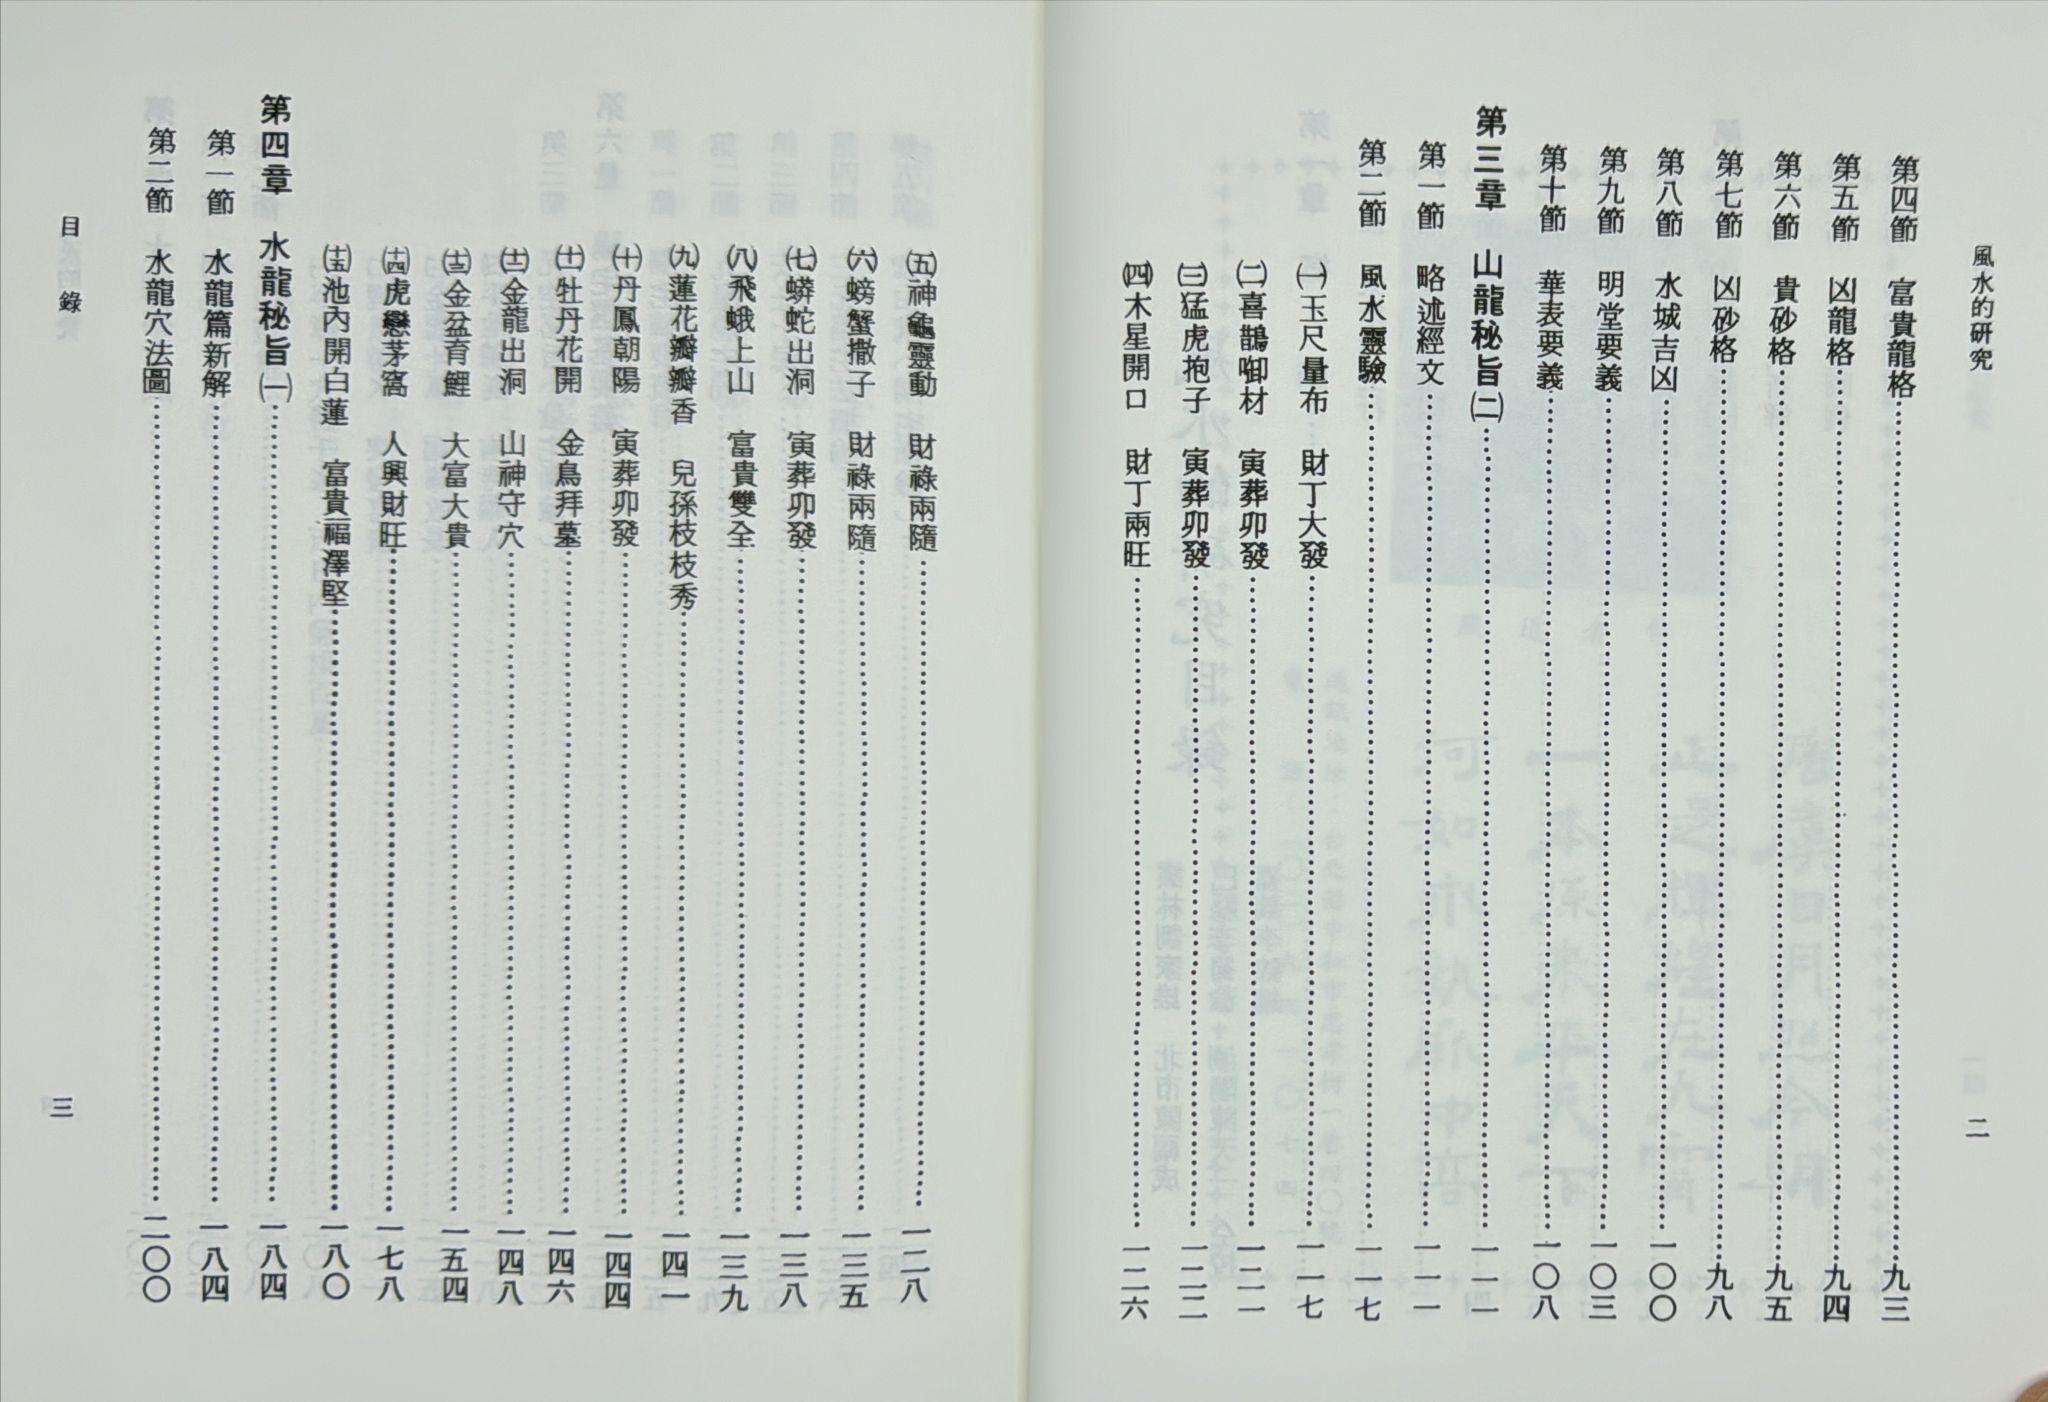 風水的研究
二
第四節 富貴龍格………九三
第五節 凶龍格………九四
第六節 貴砂格………九五
第七節 凶砂格………九八
第八節 水城吉凶………一〇〇
第九節 明堂要義………一〇三
第十節 華表要義………一〇八
第三章 山龍秘旨㈡………一一一
第一節 略述經文………一一一
第二節 風水靈驗………一一七
㈠玉尺量布 財丁大發………一一七
㈡喜鵲啣材 寅葬卯發………一二一
㈢猛虎抱子 寅葬卯發………一二二
㈣木星開口 財丁兩旺………一二六
㈤神龜靈動 財祿兩隨………一二八
㈥螃蟹撒子 財祿兩隨………一三五
㈦蟒蛇出洞 寅葬卯發………一三八
㈧飛蛾上山 富貴雙全………一三九
㈨蓮花瓣瓣香 兒孫枝枝秀………一四一
㈩丹鳳朝陽 寅葬卯發………一四四
(十一)牡丹花開 金鳥拜墓………一四六
(十二)金龍出洞 山神守穴………一四八
(十三)金盆育鯉 大富大貴………一五四
(十四)虎戀茅窩 人興財旺………一七八
(十五)池內開白蓮 富貴福澤堅………一八〇
第四章 水龍秘旨㈠………一八四
第一節 水龍篇新解………一八四
第二節 水龍穴法圖………二〇〇
目錄
三